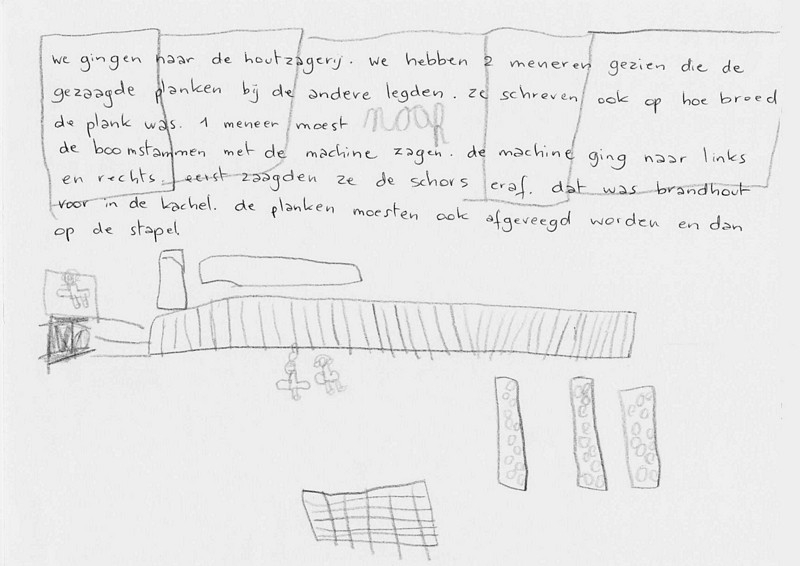 we gingen naar de houtzagerij. we hebben 2 meneren gezien die de
gezaagde planken bij de andere legden. ze schreven ook op hoe breed
de plank was. 1 meneer moest noor
de boomstammen met de machine zagen. de machine ging naar links
en rechts. eerst zaagden ze de schors eraf. dat was brandhout
voor in de kachel. de planken moesten ook afgeveegd worden en dan
op de stapel.